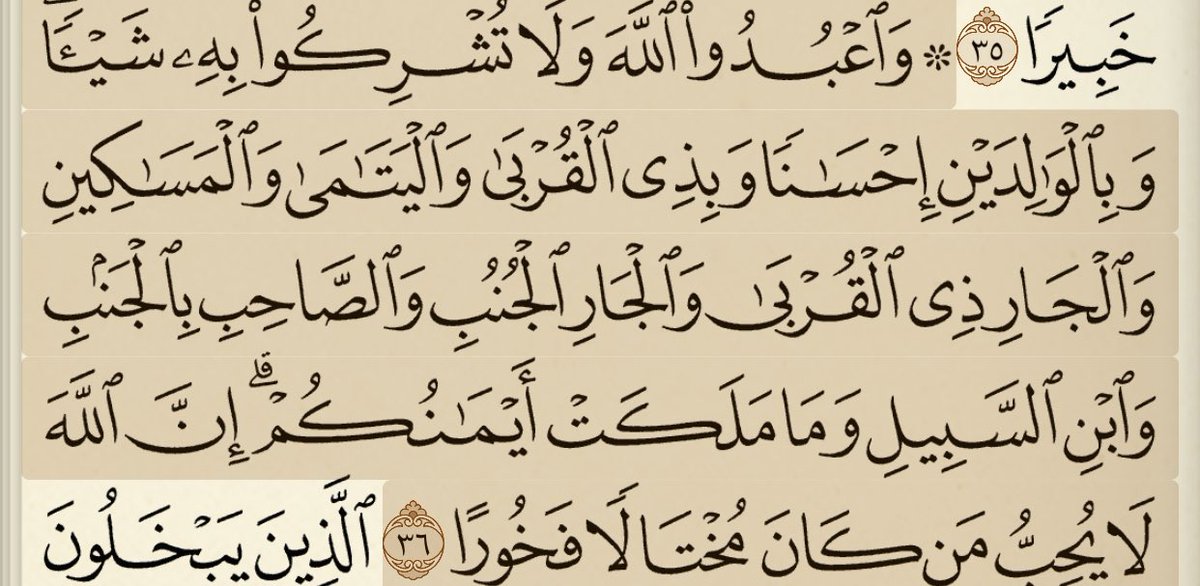 خَبِيرًا ٣٥ ۞ وَٱعْبُدُوا۟ ٱللَّهَ وَلَا تُشْرِكُوا۟ بِهِۦ شَيْـًٔا
وَبِٱلْوَٰلِدَيْنِ إِحْسَـٰنًا وَبِذِى ٱلْقُرْبَىٰ وَٱلْيَتَـٰمَىٰ وَٱلْمَسَـٰكِينِ
وَٱلْجَارِ ذِى ٱلْقُرْبَىٰ وَٱلْجَارِ ٱلْجُنُبِ وَٱلصَّاحِبِ بِٱلْجَنۢبِ
وَٱبْنِ ٱلسَّبِيلِ وَمَا مَلَكَتْ أَيْمَـٰنُكُمْ ۗ إِنَّ ٱللَّهَ
لَا يُحِبُّ مَن كَانَ مُخْتَالًا فَخُورًا ٣٦ ٱلَّذِينَ يَبْخَلُونَ